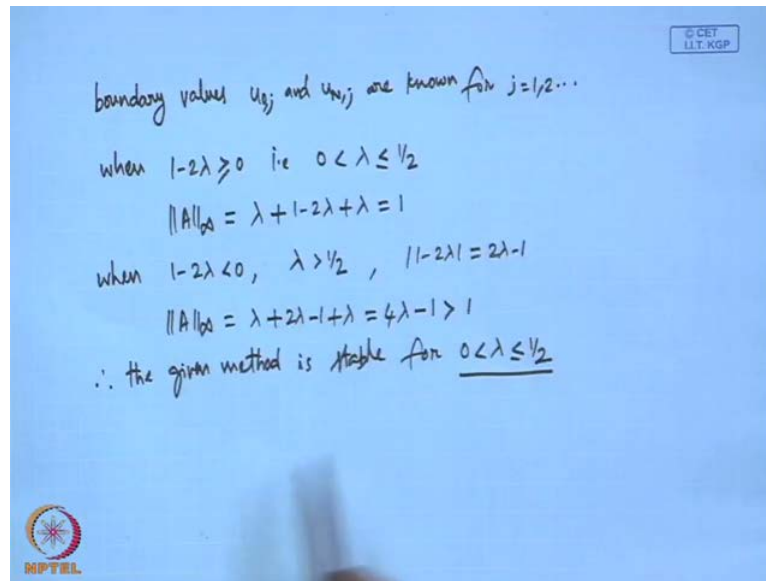 © CET
I.I.T. KGP
boundary values u₀,j and u_N,j are known for j=1,2...
when 1-2λ ≥ 0 i.e 0 < λ ≤ 1/2
||A||∞ = λ + 1-2λ + λ = 1
when 1-2λ < 0, λ > 1/2, |1-2λ| = 2λ-1
||A||∞ = λ + 2λ-1 + λ = 4λ-1 > 1
∴ the given method is stable for 0 < λ ≤ 1/2
NPTEL